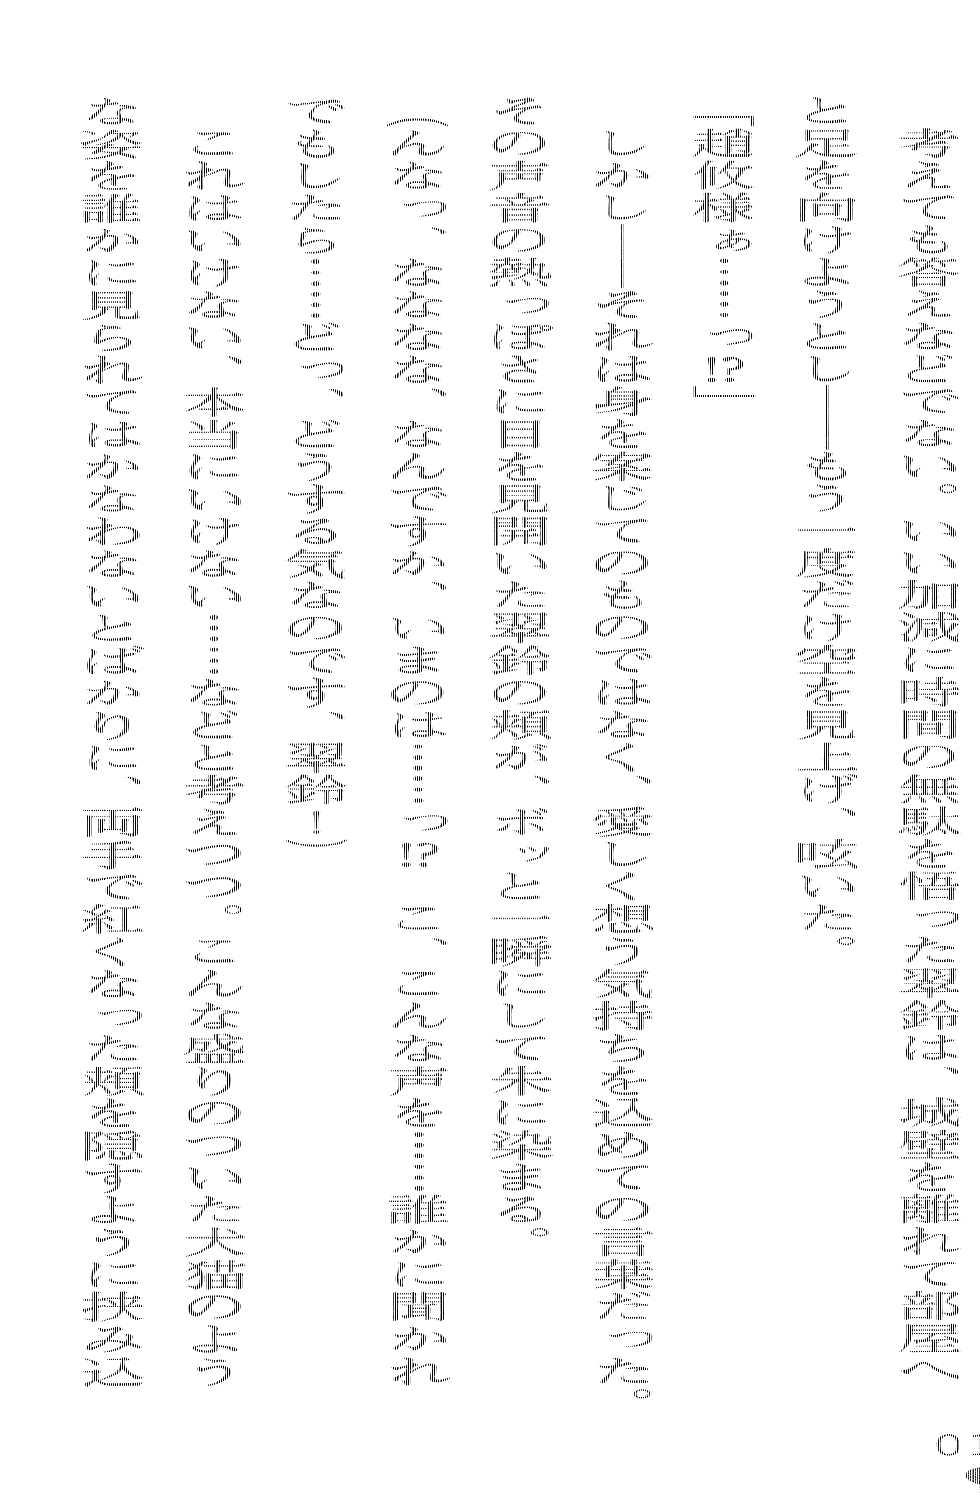 考えても答えなどでない。いい加減に時間の無駄を悟った翠鈴は、城壁を離れて部屋へ
と足を向けようとし――もう一度だけ空を見上げ、呟いた。
「趙攸様ぁ……っ!?」
しかし――それは身を案じてのものではなく、愛しく想う気持ちを込めての言葉だった。
その声音の熱っぽさに目を見開いた翠鈴の頬が、ボッと一瞬にして朱に染まる。
(んなっ、なななな、なんですか、いまのは……っ!? こ、こんな声を……誰かに聞かれ
でもしたら……どっ、どうする気なのです、翠鈴!)
これはいけない、本当にいけない……などと考えつつ。こんな盛りのついた犬猫のよう
な姿を誰かに見られてはかなわないとばかりに、両手で紅くなった頬を隠すように挟み込